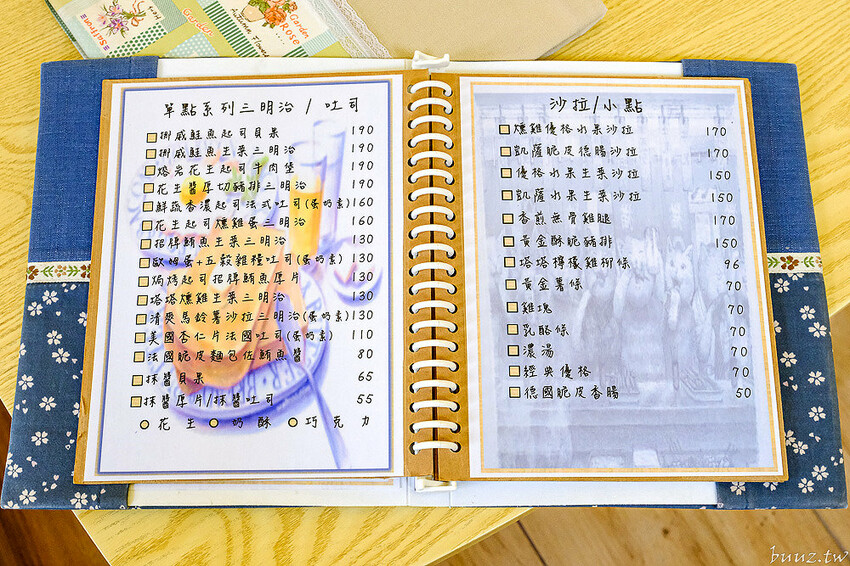 Garden
Saffron
Garden
ROSE
Autumn Flower
單點系列三明治 / 吐司
挪威鮭魚起司貝果 190
挪威鮭魚生菜三明治 190
熔岩花生起司牛肉堡 190
花生醬厚切豬排三明治 190
鮮蔬香濃起司法式吐司(蛋奶素) 160
花生起司燻雞蛋三明治 160
招牌鮪魚生菜三明治 130
歐姆蛋+五穀雜糧吐司(蛋奶素) 130
焗烤起司招牌鮪魚厚片 130
塔塔燻雞生菜三明治 130
清爽馬鈴薯沙拉三明治(蛋奶素) 130
美國杏仁片法國吐司(蛋奶素) 110
法國脆皮麵包佐鮪魚醬 80
抹醬貝果 65
抹醬厚片/抹醬吐司 55
花生 奶酥 巧克力
沙拉/小點
燻雞優格水果沙拉 170
凱薩脆皮德腸沙拉 170
優格水果生菜沙拉 150
凱薩水果生菜沙拉 150
香煎無骨雞腿 170
黃金酥脆豬排 150
塔塔檸檬雞柳條 96
黃金薯條 70
雞塊 70
乳酪條 70
濃湯 70
經典優格 70
德國脆皮香腸 50
buuz.tw